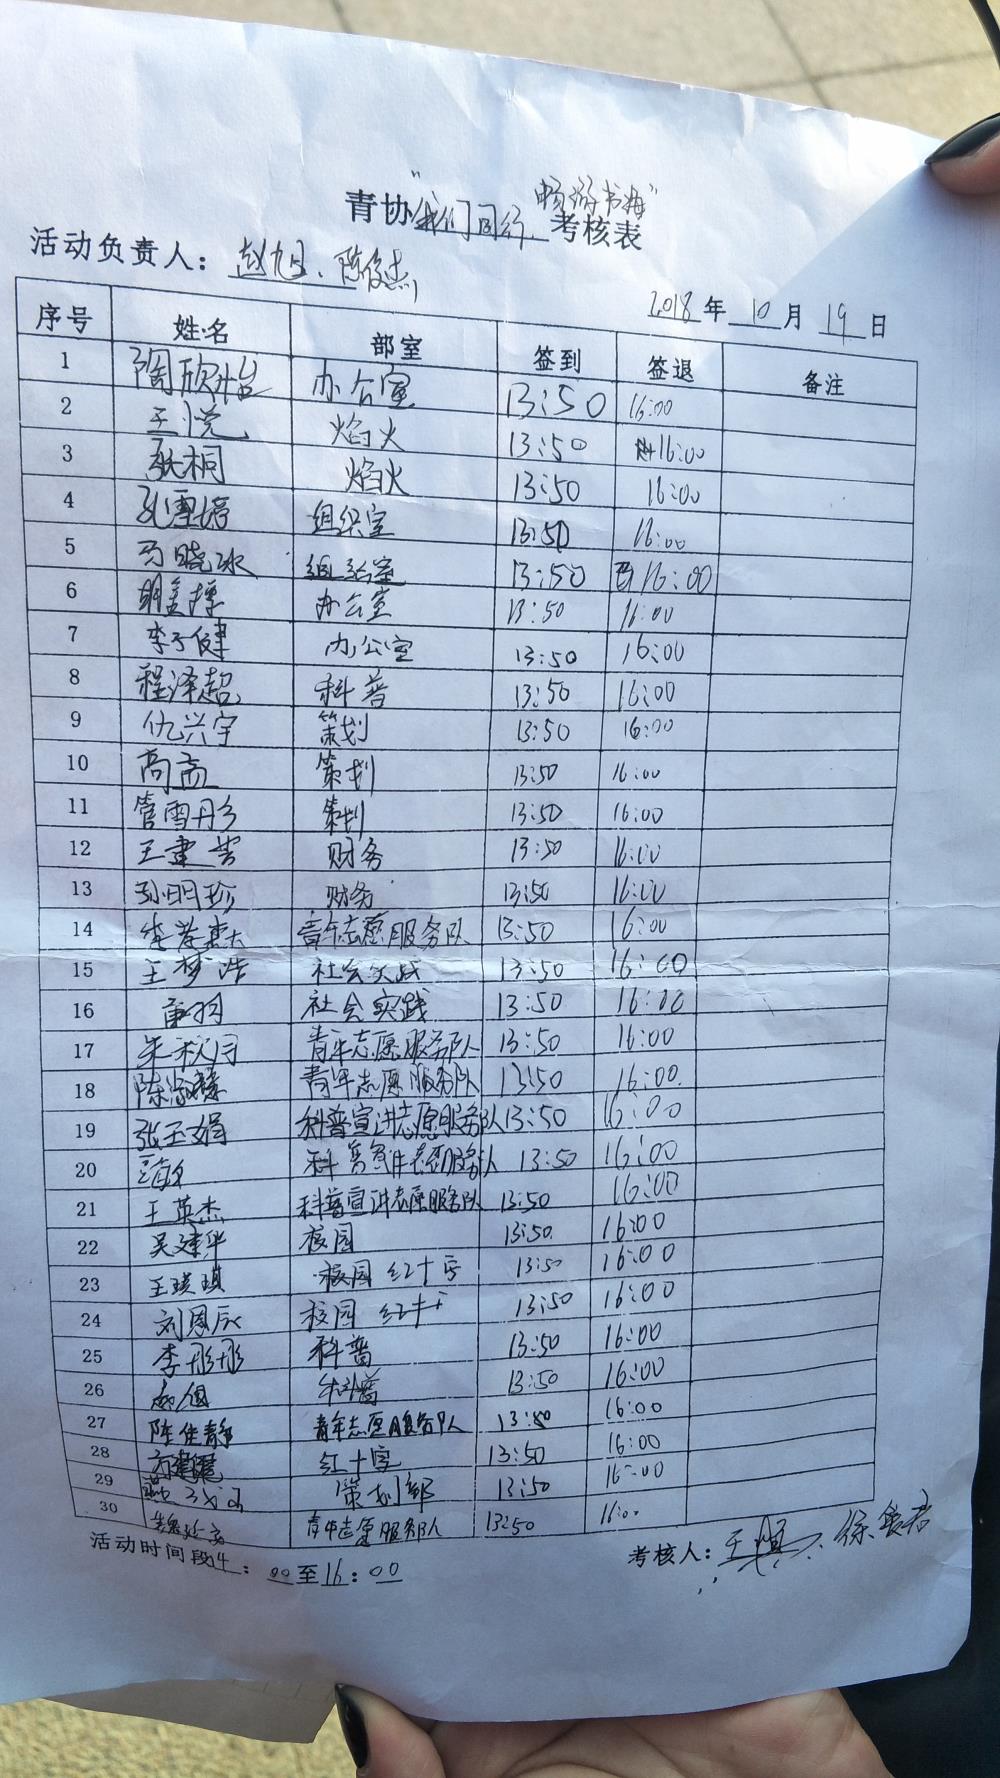 青协"我们同行 畅游书海"考核表
活动负责人：赵旭、陈俊杰
2018年10月19日
序号 姓名 部室 签到 签退 备注
1 陶欣怡 办公室 13:50 16:00
2 王悦 焰火 13:50 16:00
3 耿桐 焰火 13:50 16:00
4 组织室 13:50 16:00
5 马晓冰 组织室 13:50 16:00
6 办公室 13:50 16:00
7 李子健 办公室 13:50 16:00
8 程泽超 科普 13:50 16:00
9 仇兴宇 策划 13:50 16:00
10 高孟 策划 13:50 16:00
11 管雪丹 策划 13:50 16:00
12 王 财务 13:50 16:00
13 孙明珍 财务 13:50 16:00
14 青年志愿服务队 13:50 16:00
15 王梦浩 社会实践 13:50 16:00
16 社会实践 13:50 16:00
17 朱秋月 青年志愿服务队 13:50 16:00
18 陈 青年志愿服务队 13:50 16:00
19 张玉娟 科普宣讲志愿服务队 13:50 16:00
20 科普宣讲志愿服务队 13:50 16:00
21 王英杰 科普宣讲志愿服务队 13:50 16:00
22 吴建华 校园 13:50 16:00
23 王瑛琪 校园 红十字 13:50 16:00
24 刘恩辰 校园 红十字 13:50 16:00
25 李彤彤 科普 13:50 16:00
26 科普 13:50 16:00
27 陈佳静 青年志愿服务队 13:50 16:00
28 红十字 13:50 16:00
29 策划部 13:50 16:00
30 青年志愿服务队 13:50 16:00
活动时间段14：00至16：00
考核人：王 、徐